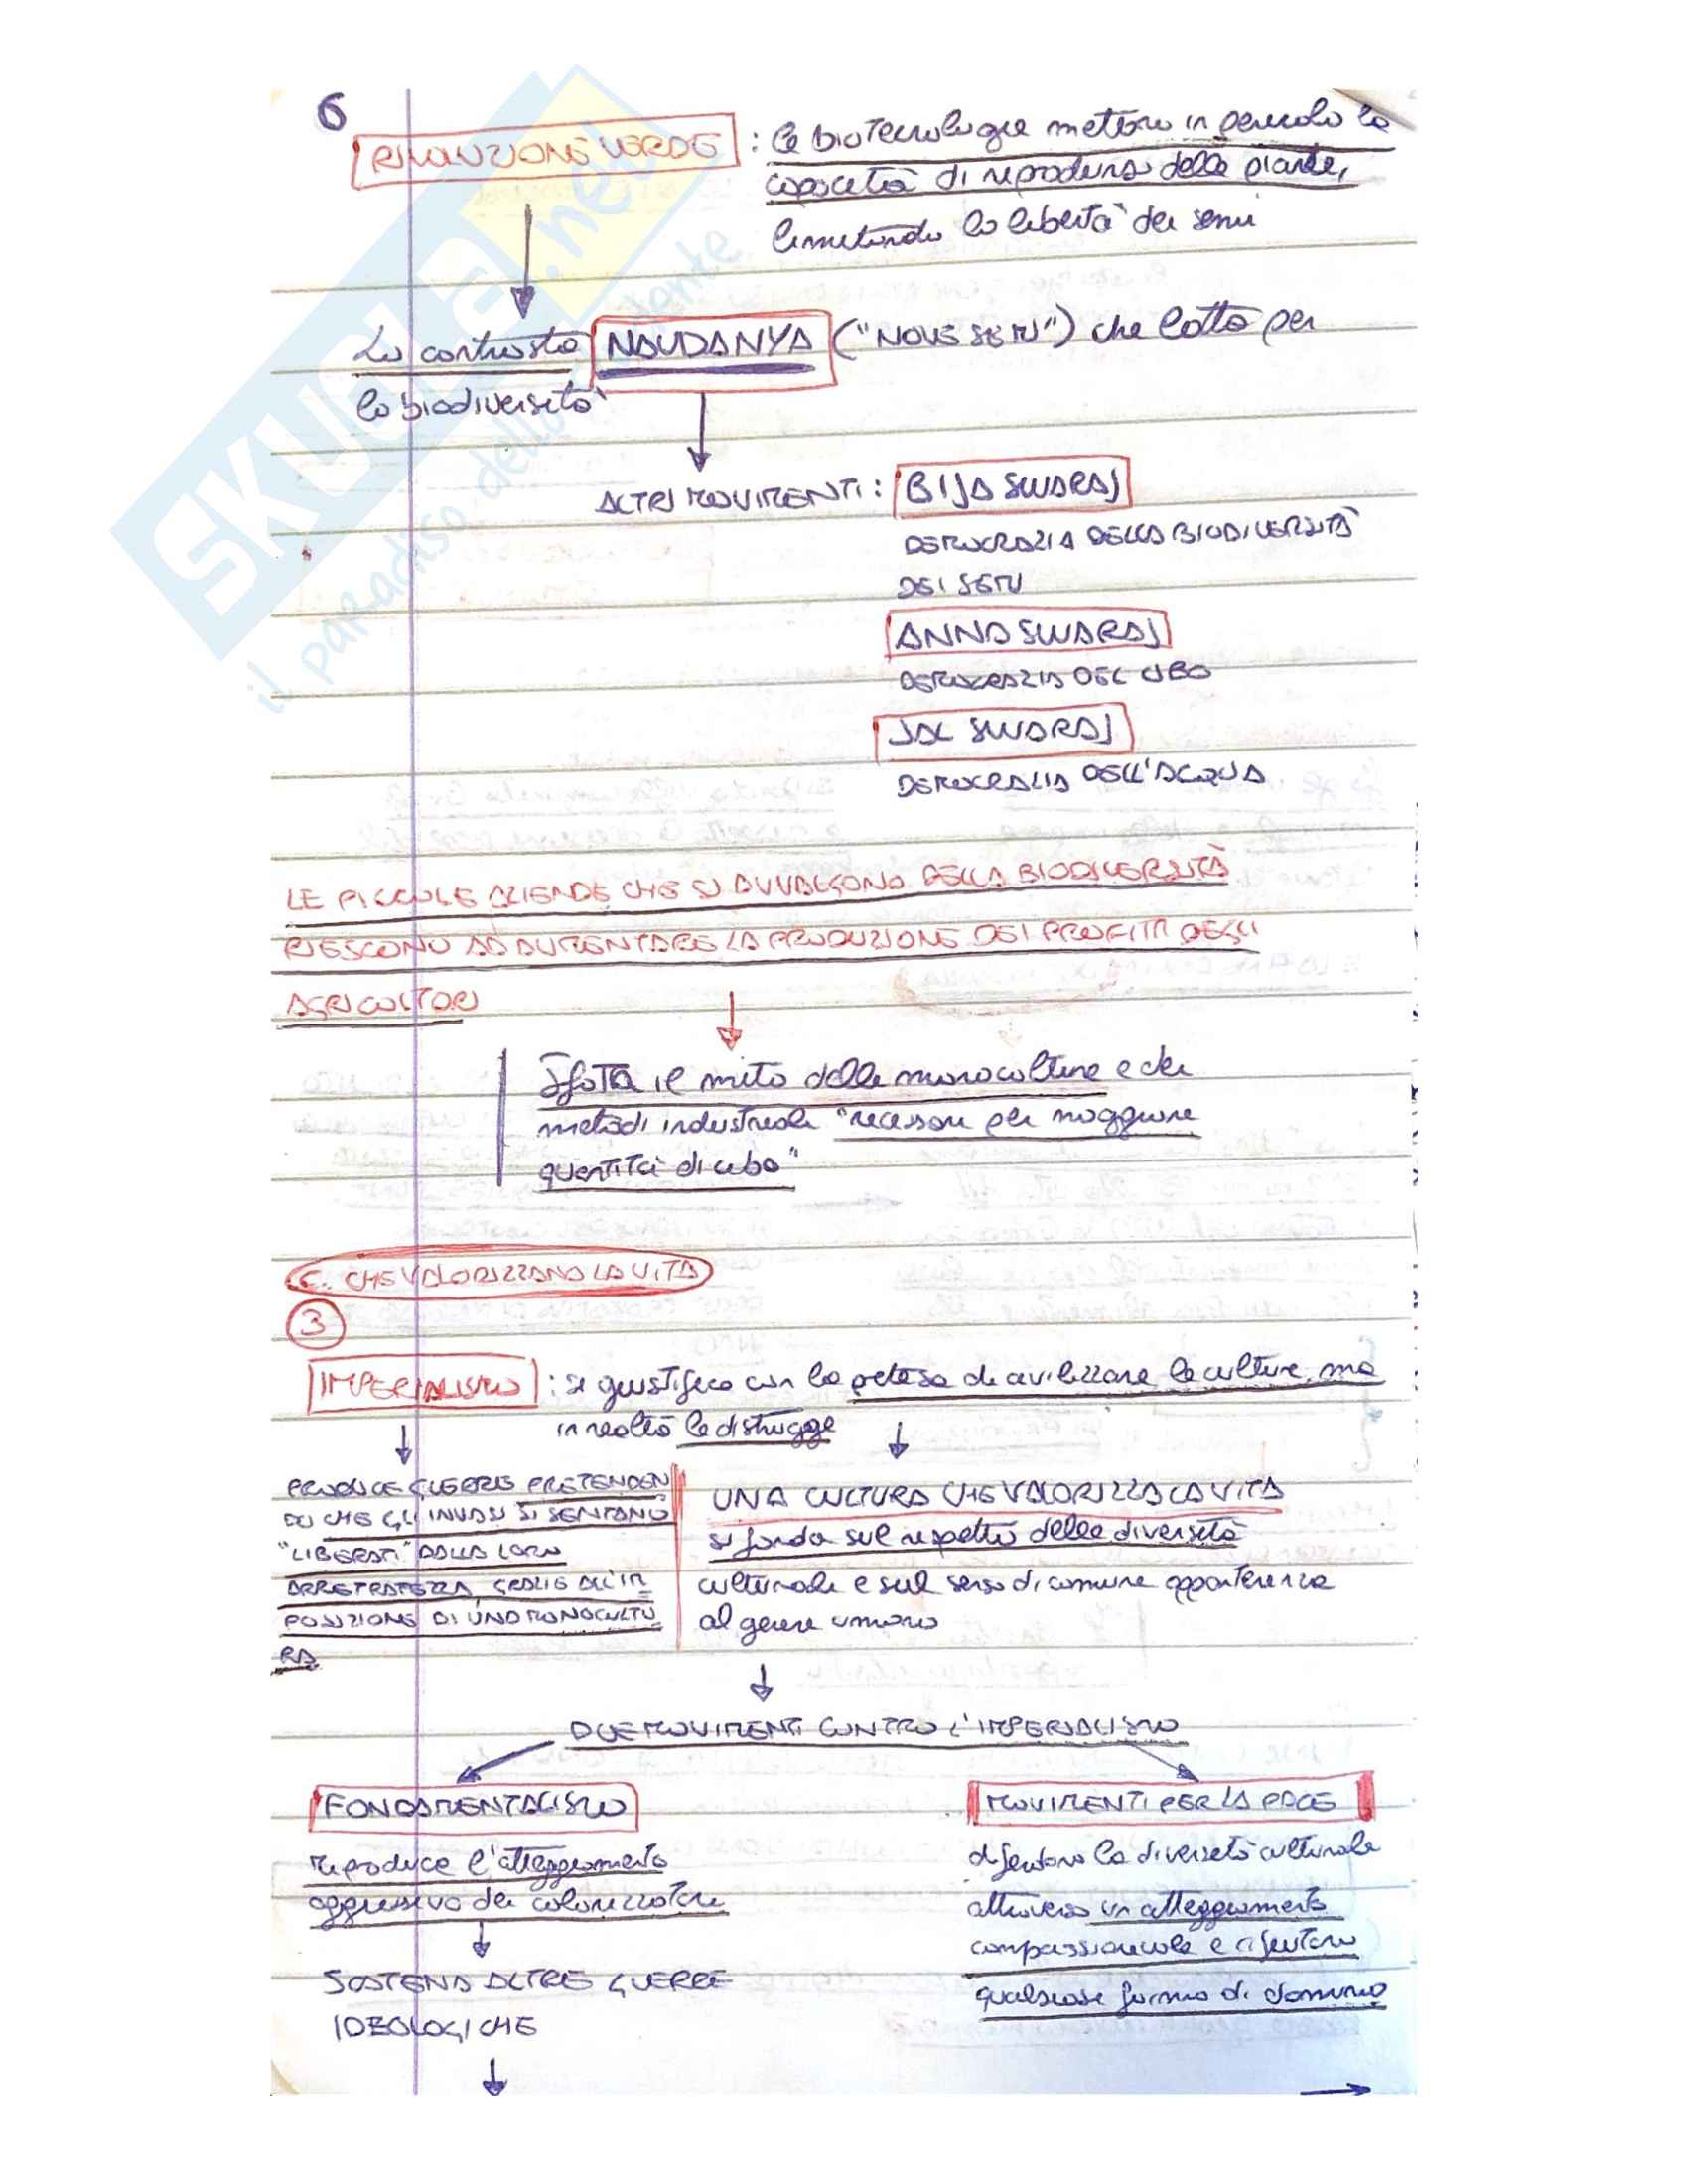 6
RIVOLUZIONE VERDE : le biotecnologie mettono in pericolo la
capacità di riprodursi delle piante,
limitando la libertà dei semi
Lo contrasta NAVDANYA ("NOVE SEMI") che lotta per
la biodiversità
ALTRI MOVIMENTI: BIJA SWARAJ
DEMOCRAZIA DELLA BIODIVERSITÀ
DEI SEMI
ANNA SWARAJ
DEMOCRAZIA DEL CIBO
JAL SWARAJ
DEMOCRAZIA DELL'ACQUA
LE PICCOLE AZIENDE CHE SI AVVALGONO DELLA BIODIVERSITÀ
RIESCONO AD AUMENTARE LA PRODUZIONE DEI PROFITTI DEGLI
AGRICOLTORI
Sfata il mito delle monocolture e dei
metodi industriali "necessari per maggiore
quantità di cibo"
C. CHE VALORIZZANO LA VITA
3
IMPERIALISMO : si giustifica con la pretesa di civilizzare le culture, ma
in realtà le distrugge
PRODUCE GUERRE PRETENDEN
DO CHE GLI INVASI SI SENTANO
"LIBERATI" DALLA LORO
ARRETRATEZZA, GRAZIE ALL'IM
POSIZIONE DI UNA MONOCULTU
RA
UNA CULTURA CHE VALORIZZA LA VITA
si fonda sul rispetto delle diversità
culturali e sul senso di comune appartenenza
al genere umano
DUE MOVIMENTI CONTRO L'IMPERIALISMO
FONDAMENTALISMO
riproduce l'atteggiamento
aggressivo dei colonizzatori
SOSTENA ALTRE GUERRE
IDEOLOGICHE
MOVIMENTI PER LA PACE
difendono la diversità culturale
attraverso un atteggiamento
compassionevole e rifiutano
qualsiasi forma di dominio
SKUOLA.net
il paradiso dello studente